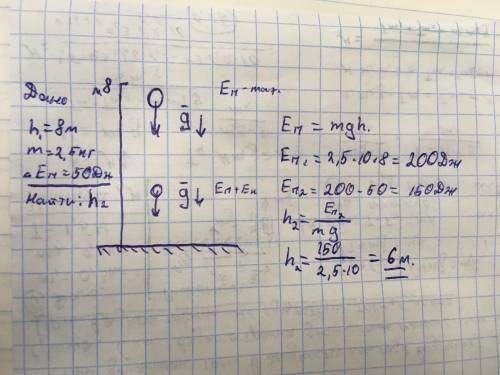 Дано
h₁=8м
m=2,5кг
ΔEп=50Дж
Найти: h₂
№8
Eп-max.
g
g
Eп+Eк
Eп = mgh.
Eп₁=2,5·10·8=200Дж
Eп₂=200-50=150Дж
h₂=Eп₂/mg
h₂=150/2,5·10=6м.